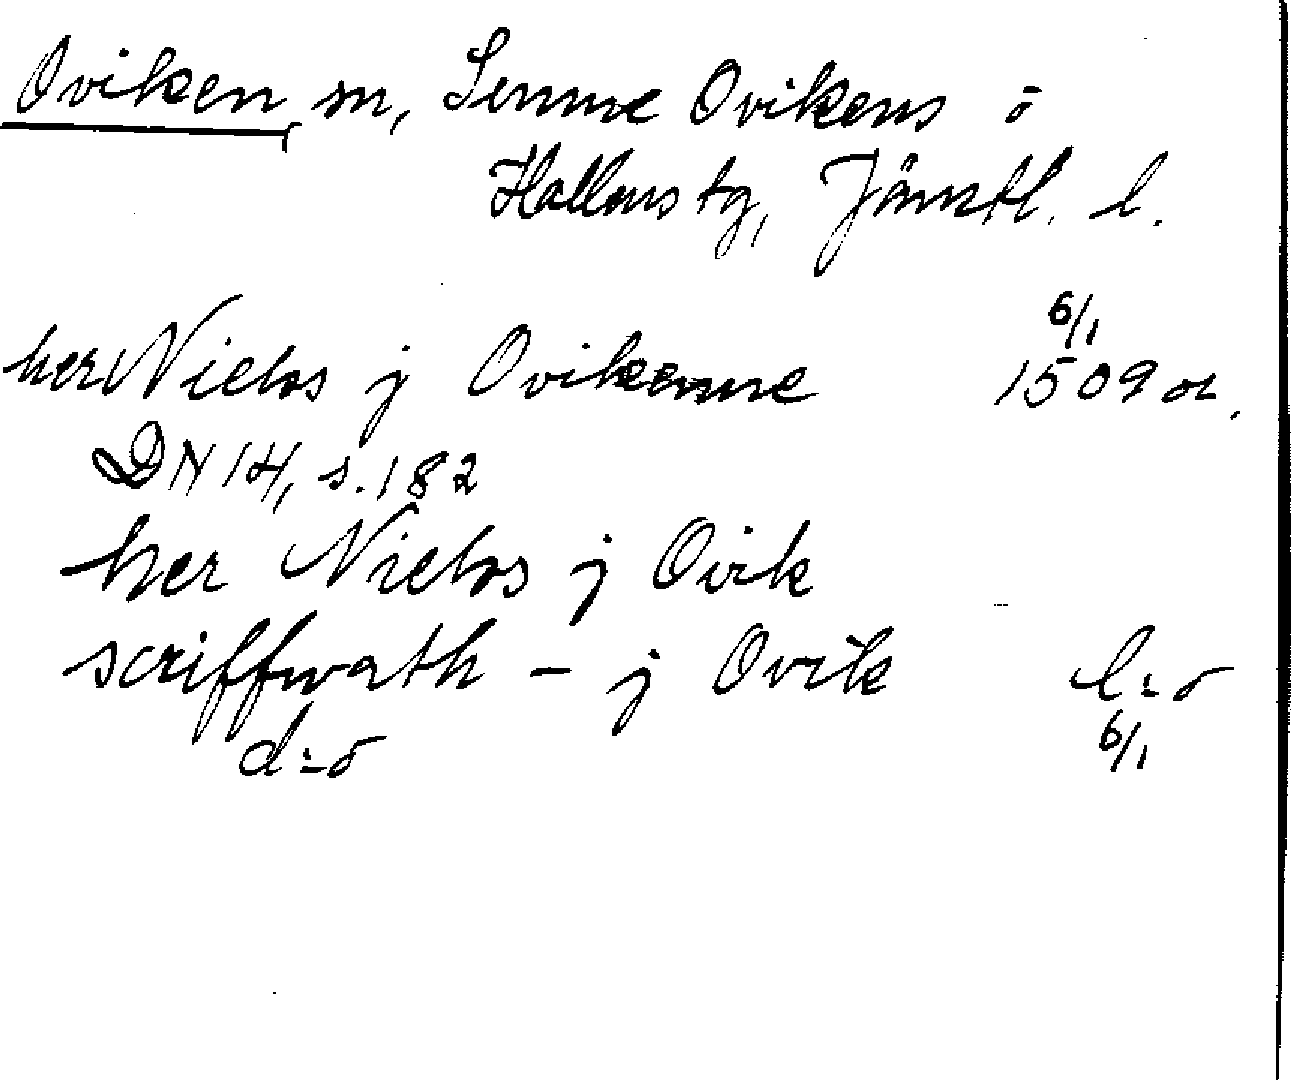 Oviken sn, Sunne Ovikens o
Hallens tg, Jämtl. l.
6/1
her Nielss j Ovikenne 1509 or.
DN 14, s. 182
her Nielss j Ovik
scriffwath – j Ovik l:o
d:o 6/1